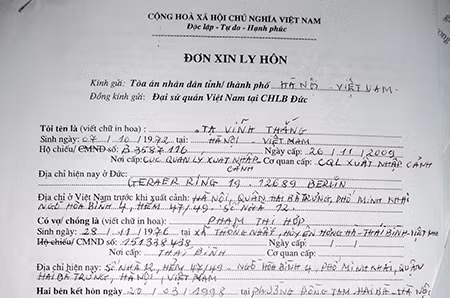 CỘNG HOÀ XÃ HỘI CHỦ NGHĨA VIỆT NAM
Độc lập - Tự do - Hạnh phúc
ĐƠN XIN LY HÔN
Kính gửi: Tòa án nhân dân tỉnh/ thành phố HÀ NỘI - VIỆT NAM
Đồng kính gửi: Đại sứ quán Việt Nam tại CHLB Đức
Tôi tên là (viết chữ in hoa) : TẠ VĨNH THẮNG
Sinh ngày: 07 / 10 / 1972 tại: HÀ NỘI - VIỆT NAM
Hộ chiếu/ CMND số: B 3587116 Ngày cấp: 26 / 11 / 2009
Nơi cấp: CỤC QUẢN LÝ XUẤT NHẬP CẢNH Cơ quan cấp: CQL XUẤT NHẬP CẢNH
Địa chỉ hiện nay ở Đức: GERAER RING 19 12689 BERLIN
Địa chỉ ở Việt Nam trước khi xuất cảnh: HÀ NỘI, QUẬN HAI BÀ TRƯNG, PHỐ MINH KHAI
NGÕ HÒA BÌNH 4, HẺM 47/49 - SỐ NHÀ 12
Có vợ/chồng là (viết chữ in hoa) : PHẠM THỊ HỢP
Sinh ngày: 28 / 11 / 1976 tại XÃ THỐNG NHẤT, HUYỆN HƯNG HÀ - THÁI BÌNH - VIỆT NAM
Hộ chiếu/ CMND số: 151338438 Ngày cấp: / /
Nơi cấp: THÁI BÌNH Cơ quan cấp:
Địa chỉ hiện nay: SỐ NHÀ 12, HẺM 47/49 - NGÕ HÒA BÌNH 4, PHỐ MINH KHAI, QUẬN
HAI BÀ TRƯNG, HÀ NỘI, VIỆT NAM
Hai bên kết hôn ngày 20 / 03 / 1998 tại PHƯỜNG ĐỒNG TÂM, HAI BÀ